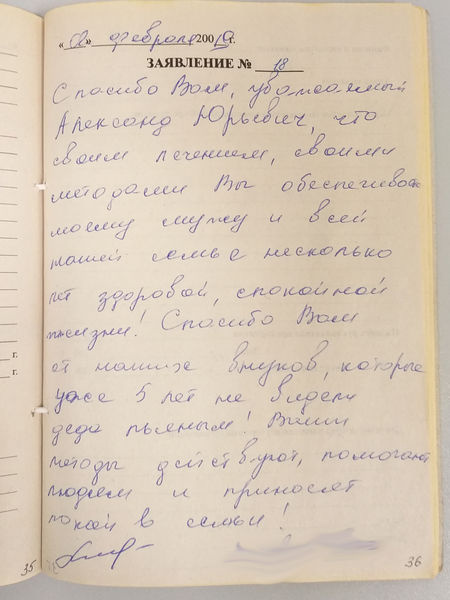 « 02 » февраля 200 19 г.
ЗАЯВЛЕНИЕ № 18
Спасибо Вам, уважаемый
Александ Юрьевич, что
своим лечением, своими
методами Вы обеспечиваете
моему мужу и всей
нашей семье несколько
лет здоровой, спокойной
жизни! Спасибо Вам
от наших внуков, которые
уже 5 лет не видели
деда пьяным! Ваши
методы действуют, помогают
людям и приносят
покой в семьи!
г.
г.
35
36